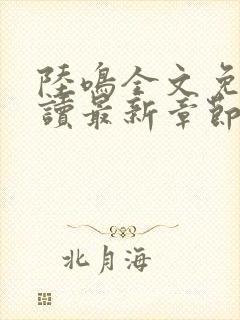 陸鳴全文免
讀最新章節
北月海